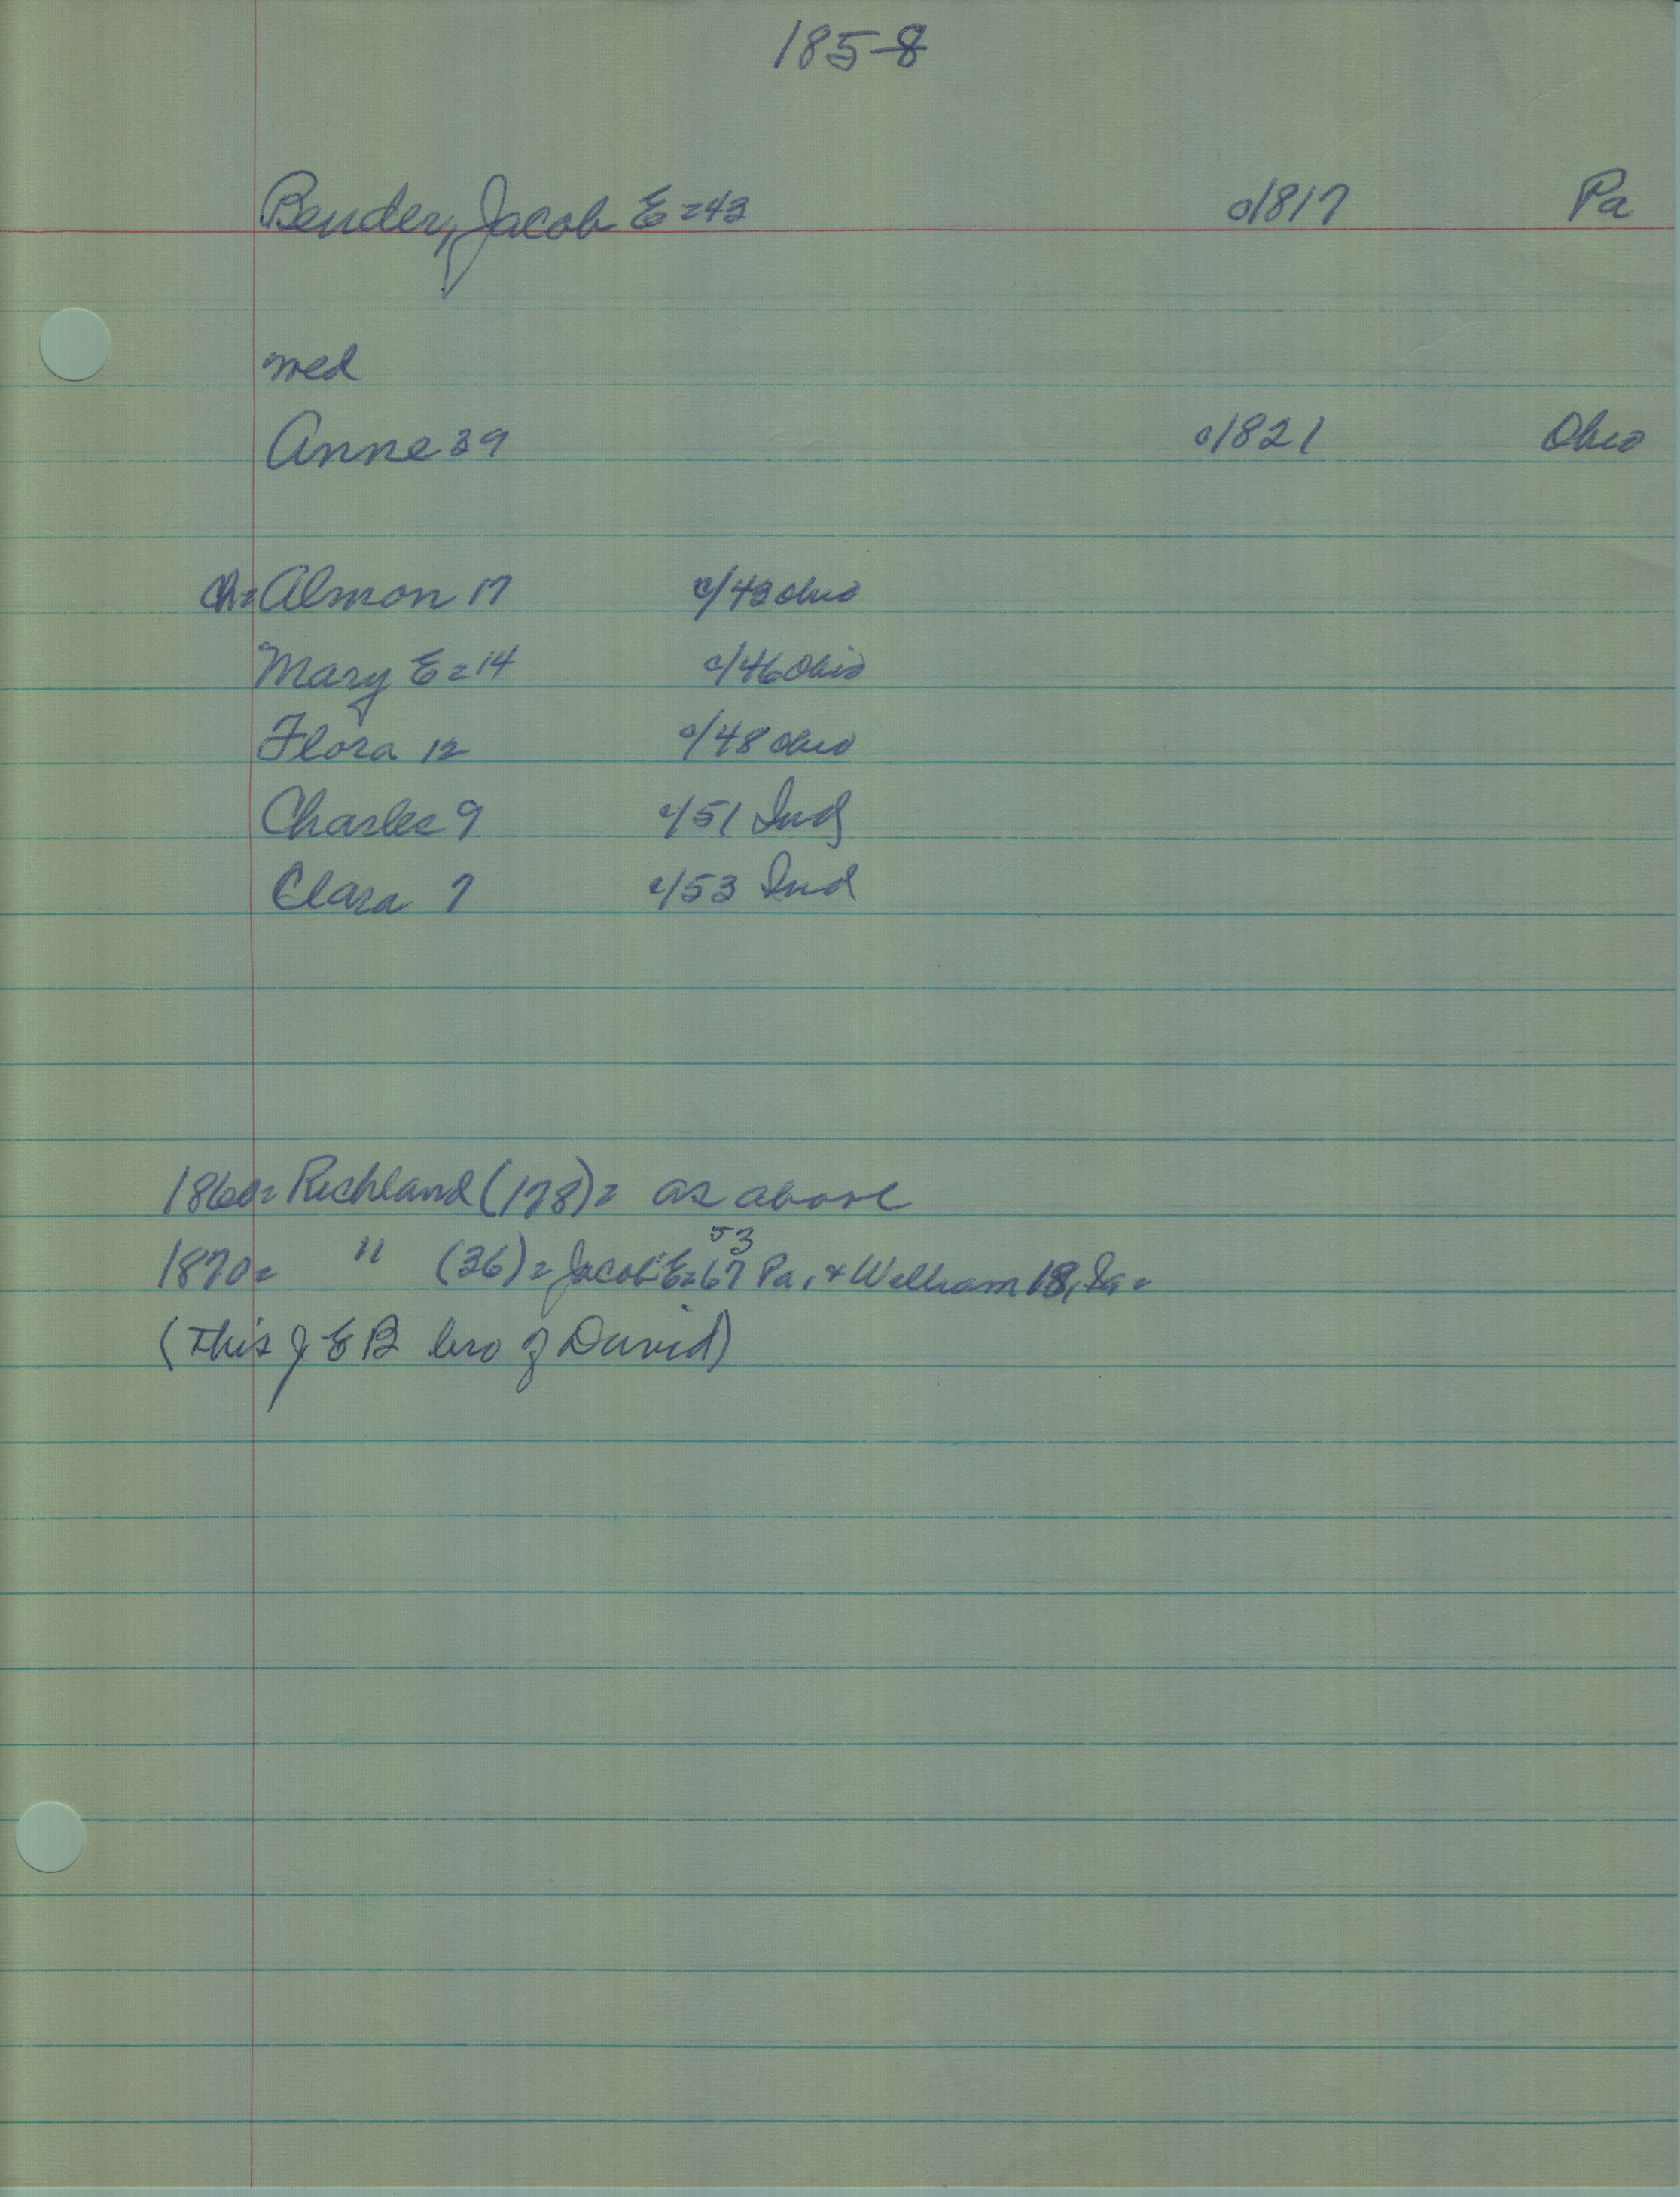 185-8
Bender, Jacob E=43 c/1817 Pa
med
Anne 39 c/1821 Ohio
Ch= Almon 17 c/43 Ohio
Mary E=14 c/46 Ohio
Flora 12 c/48 Ohio
Charles 9 c/51 Ind
Clara 7 c/53 Ind
1860= Richland (178)= as above
53
1870= " (36)= Jacob E=67 Pa, + William 18, Pa=
(This J E B bro of David)